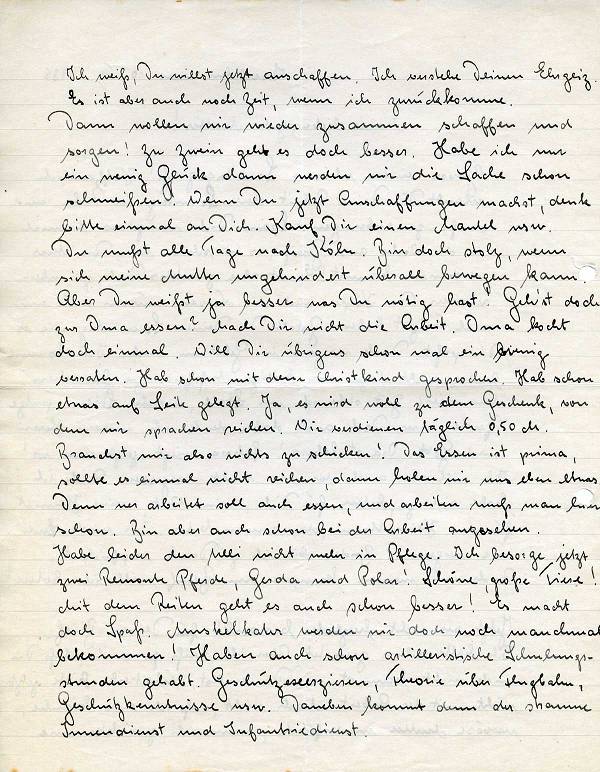 Ich weiß, Du willst jetzt anschaffen. Ich verstehe Deinen Ehrgeiz.
Es ist aber auch noch Zeit, wenn ich zurückkomme.
Dann wollen wir wieder zusammen schaffen und
sorgen! Zu zwein geht es doch besser. Habe ich nur
ein wenig Glück dann werden wir die Sache schon
schmeißen! Wenn Du jetzt Anschaffungen machst, denk
bitte einmal an Dich. Kauf Dir einen Mantel usw.
Du mußt alle Tage nach Köln. Bin doch stolz, wenn
sich meine Mutter ungehindert überall bewegen kann.
Aber Du weißt ja besser was Du nötig hast! Gehst doch
zur Oma essen? Mach Dir nicht die Arbeit. Oma kocht
doch einmal. Will Dir übrigens schon mal ein wenig
verraten. Hab schon mit dem Christkind gesprochen. Hab schon
etwas auf Seite gelegt. Ja, es wird wohl zu dem Geschenk, von
dem wir sprachen reichen. Wir verdienen täglich 0,50 M.
Brauchst mir also nichts zu schicken! Das Essen ist prima,
sollte es einmal nicht reichen, dann holen wir uns eben etwas.
Denn wer arbeitet soll auch essen, und arbeiten muß man hier
schon. Bin aber auch schon bei der Arbeit angesehen.
Habe leider den nicht mehr in Pflege. Ich besorge jetzt
zwei Remonte Pferde, Gerda und Polar. Schöne, große Tiere!
Mit dem Reiten geht es auch schon besser! Es macht
doch Spaß. Muskelkater werden wir doch noch manchmal
bekommen! Haben auch schon artilleristische Schulungs-
stunden gehabt. Geschützexerzieren, Theorie über Flugbahn,
Geschützkenntnisse usw. Daneben kommt dann der stramme
Innendienst und Infantriedienst.